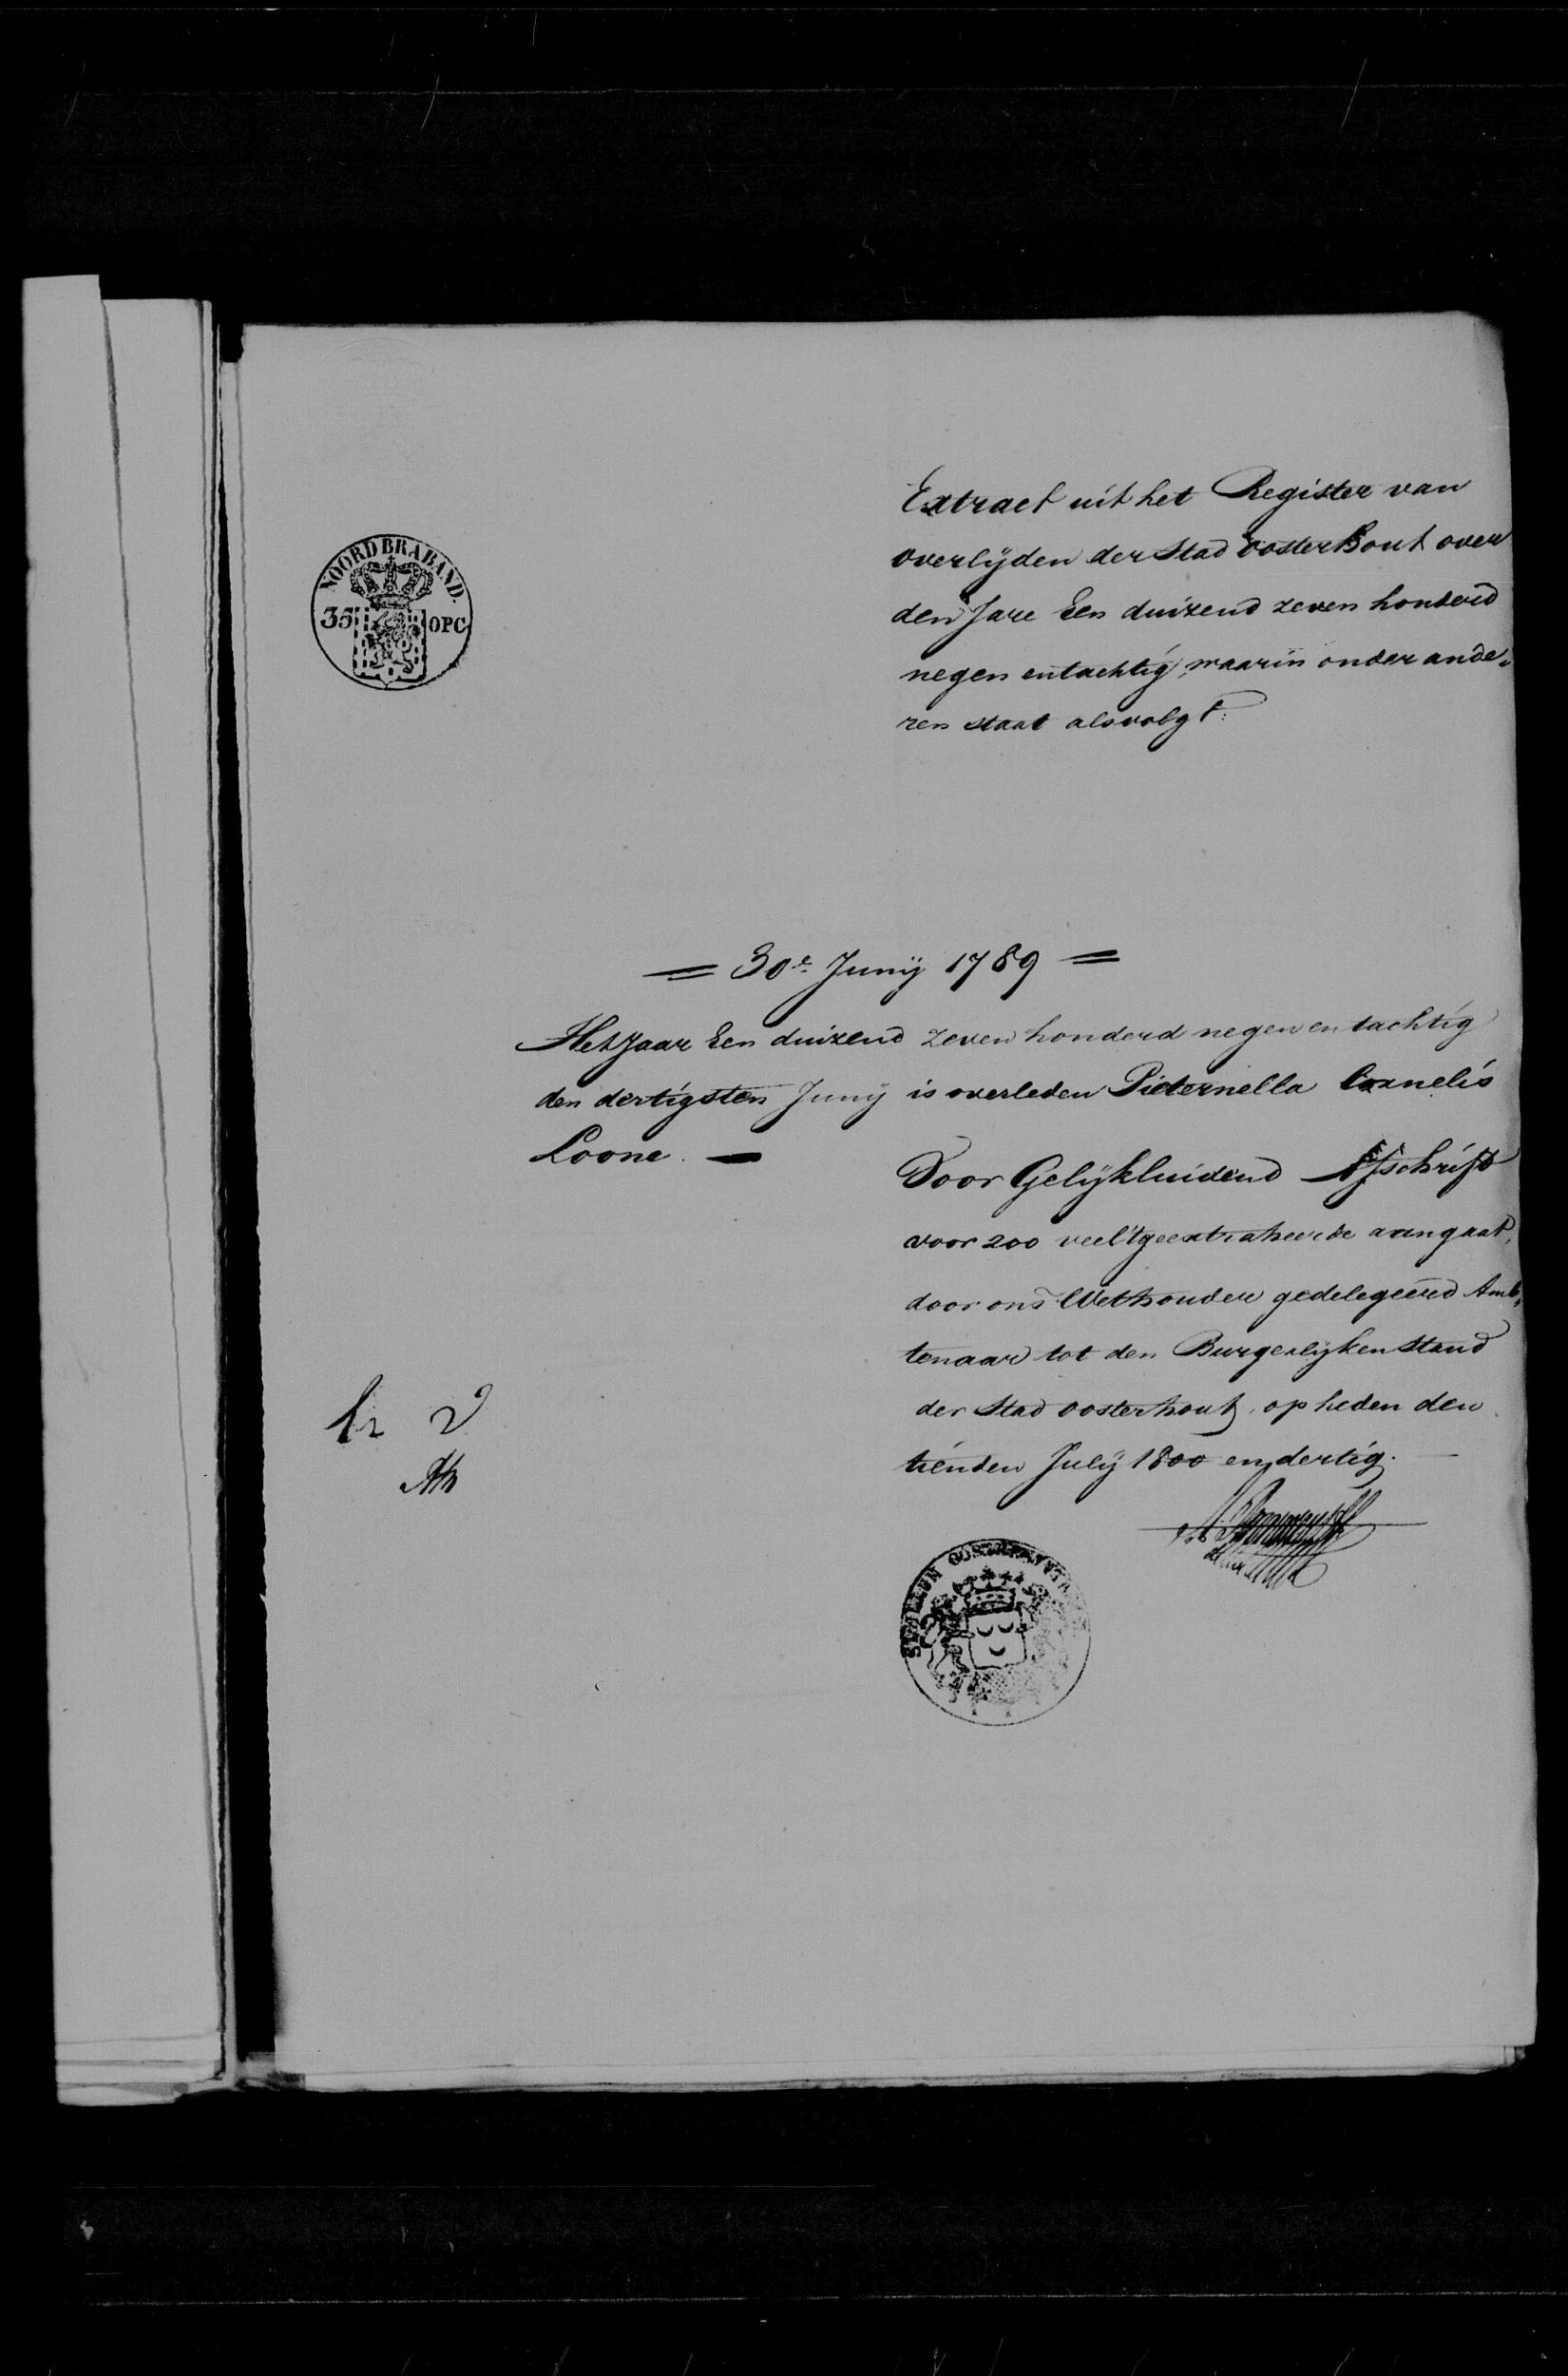 Extract uit het Register van
overlijden der Stad oosterhout over
den Jare Een duizend zeven honderd
negen entachtig, waarin onder ande„
ren staat alsvolgt:
NOORDBRABAND.
35 OPC
= 30e Junij 1789 =
Het Jaar Een duizend zeven honderd negen en tachtig
den dertigsten Junij is overleden Pieternella Cornelis
Loone. —
Voor Gelijkluidend Afschrift
voor zoo veel 'tgeextraheerde aangaat,
door ons Wethouder gedelegeerd Amb„
tenaar tot den Burgerlijken Stand
der Stad oosterhout, op heden den
tienden Julij 1800 en dertig.